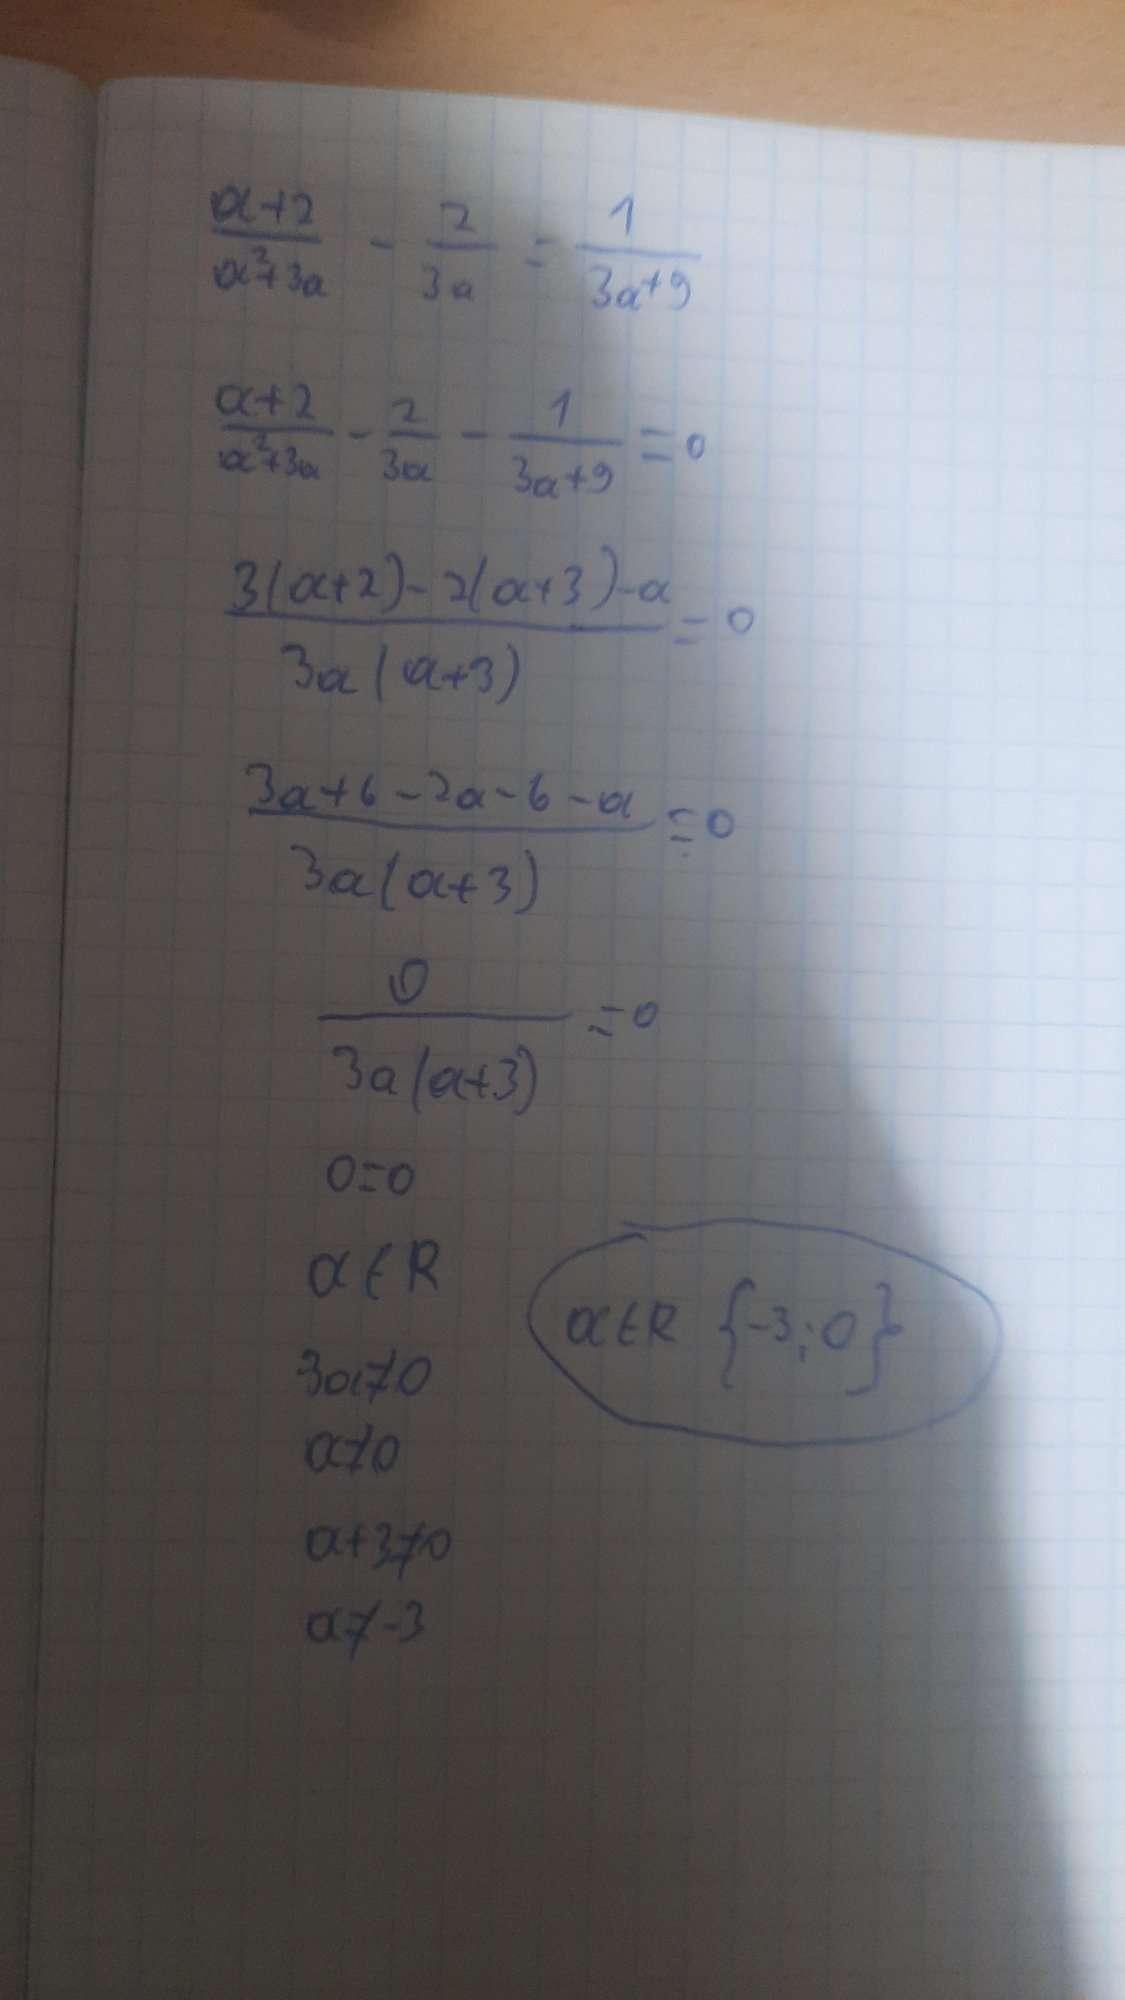 (a+2)/(a²+3a) - 2/(3a) = 1/(3a+9)
(a+2)/(a²+3a) - 2/(3a) - 1/(3a+9) = 0
(3(a+2)-2(a+3)-a)/(3a(a+3)) = 0
(3a+6-2a-6-a)/(3a(a+3)) = 0
0/(3a(a+3)) = 0
0=0
a∈R
a∈R {-3;0}
3a≠0
a≠0
a+3≠0
a≠-3